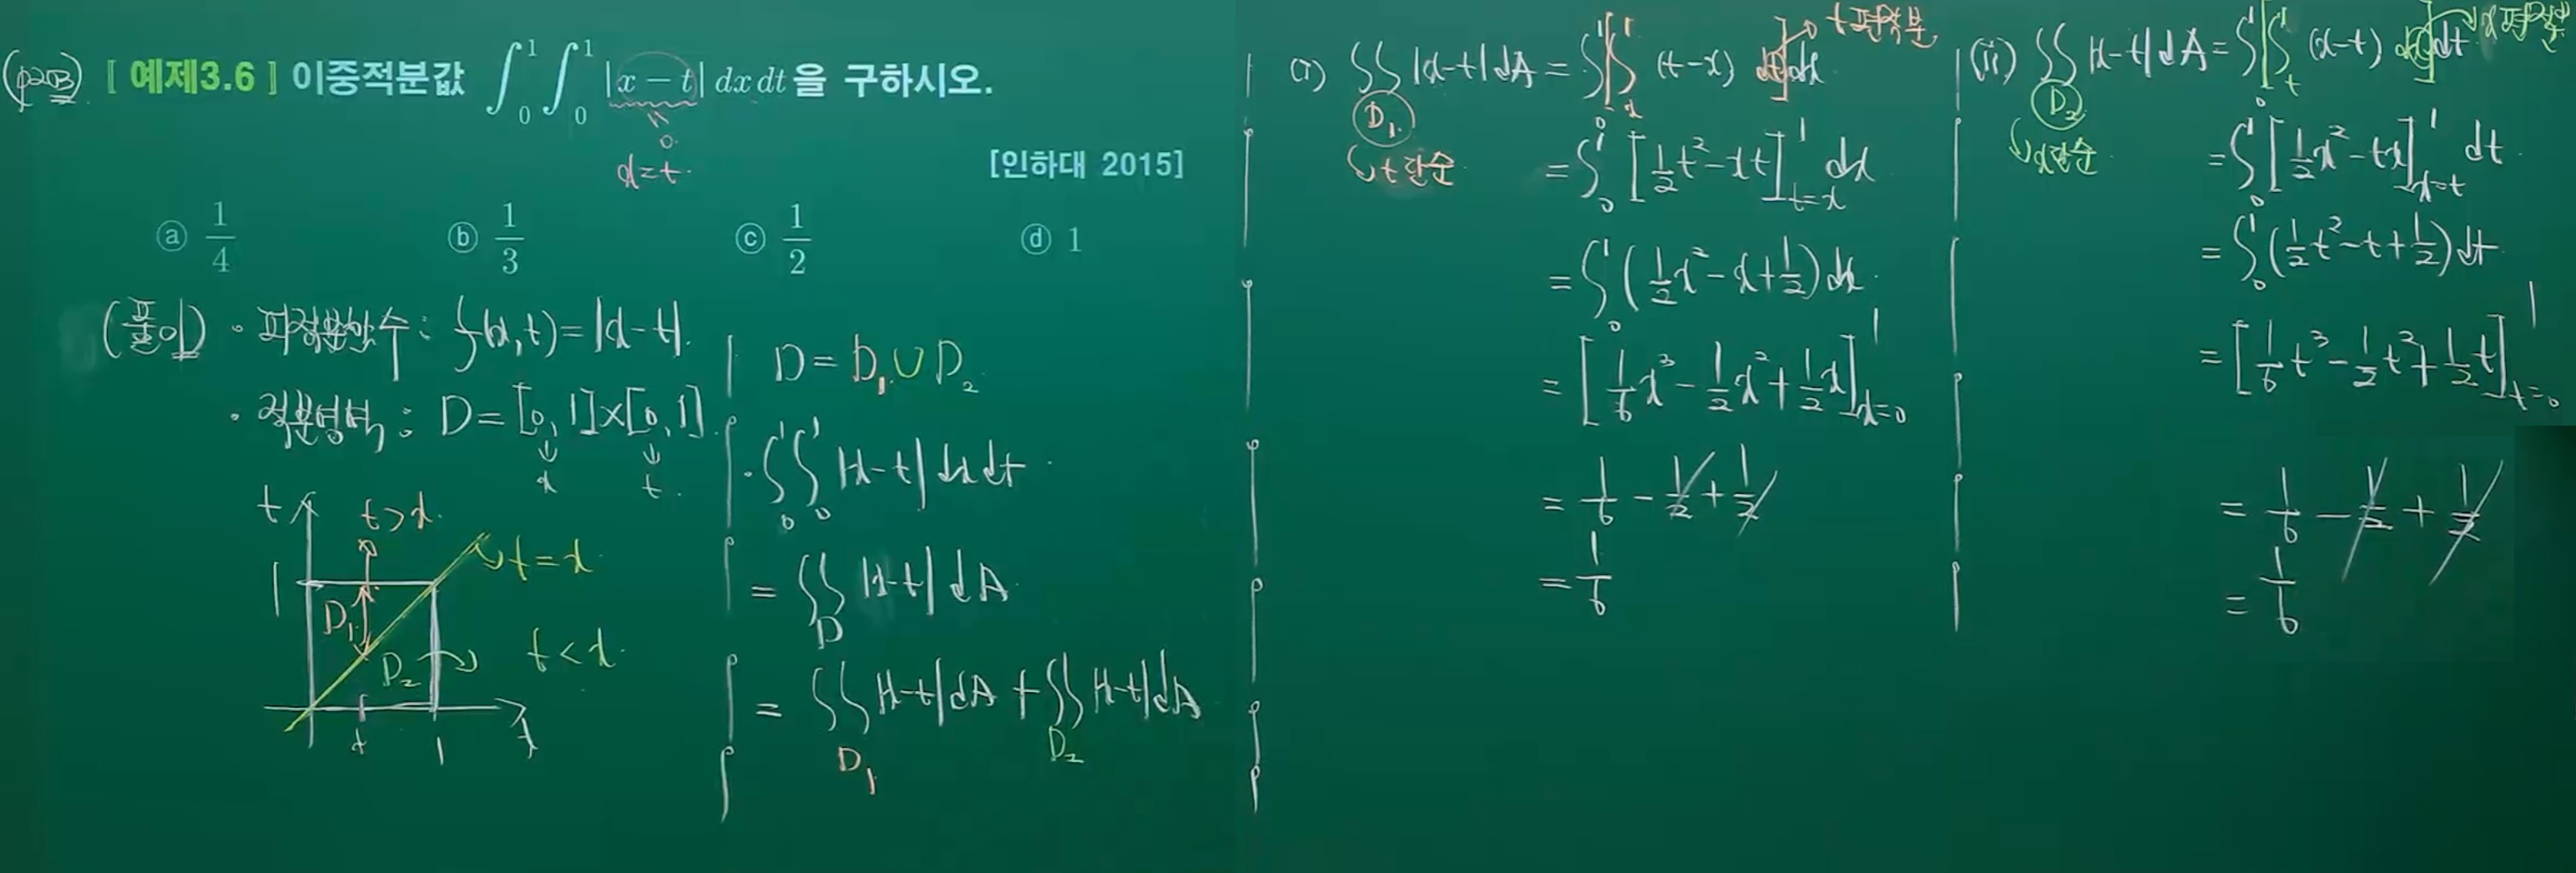 (p203) [ 예제3.6 ] 이중적분값 ∫₀¹∫₀¹ |x − t| dx dt 을 구하시오.
0
x=t.
[인하대 2015]
ⓐ 1/4 ⓑ 1/3 ⓒ 1/2 ⓓ 1
(풀이) · 피적분함수 : f(x,t)=|x-t|.
· 적분영역 : D=[0,1]×[0,1].
x t.
t t>x.
t=x
1
D₁
D₂ t<x.
x 1 x
D=D₁∪D₂
· ∫₀¹∫₀¹ |x-t| dx dt
= ∬_D |x-t| dA
= ∬_D₁ |x-t| dA + ∬_D₂ |x-t| dA
(i) ∬_D₁ |x-t| dA = ∫₀¹[∫ₓ¹ (t-x) dt]dx t 편적분
t 단순
= ∫₀¹ [1/2 t²-xt]_{t=x}^1 dx
= ∫₀¹ (1/2 x²-x+1/2) dx
= [1/6 x³-1/2 x²+1/2 x]_{x=0}^1
= 1/6 - 1/2 + 1/2
= 1/6
(ii) ∬_D₂ |x-t| dA = ∫₀¹[∫ₜ¹ (x-t) dx]dt x 편적분
x단순
= ∫₀¹ [1/2 x²-tx]_{x=t}^1 dt
= ∫₀¹ (1/2 t²-t+1/2) dt
= [1/6 t³-1/2 t²+1/2 t]_{t=0}^1
= 1/6 - 1/2 + 1/2
= 1/6